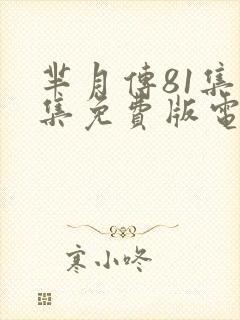 芈月傳81集
集免費版電
寒小咚